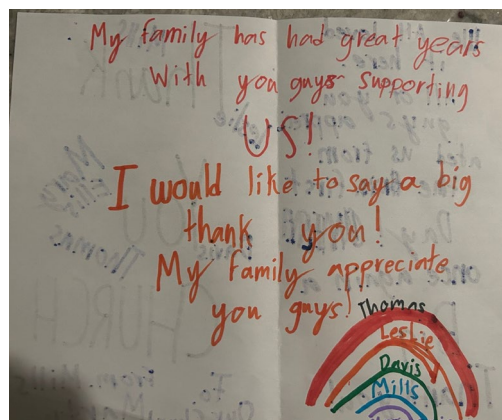 My family has had great years
With you guys supporting
US!
I would like to say a big
thank you!
My Family appreciate
you guys!
Thomas
Leslie
Davis
Mills